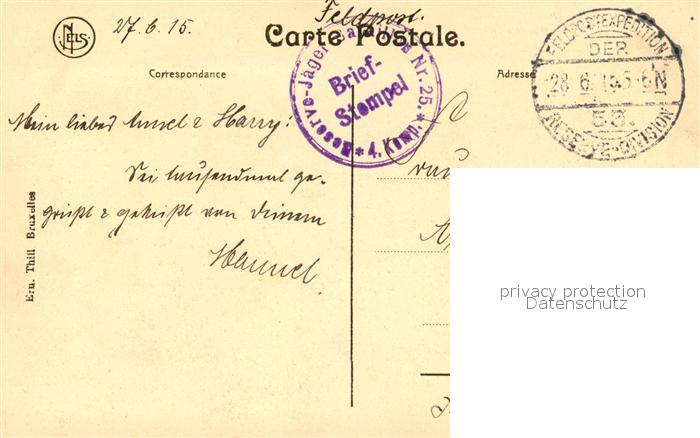 NELS
27. 6. 15.
Feldpost.
Carte Postale.
Correspondance
Adresse
Reserve-Jäger-Bataillon Nr. 25. * 4. Komp. *
Brief-
Stempel
FELDPOSTEXPEDITION
DER
28 6 15 5-6N
53.
RESERVE-DIVISION
Mein liebes
& Harry!
Sei tausendmal ge-
grüßt & geküßt von Deinem
Ern. Thill Bruxelles
privacy protection
Robot- or Download protection